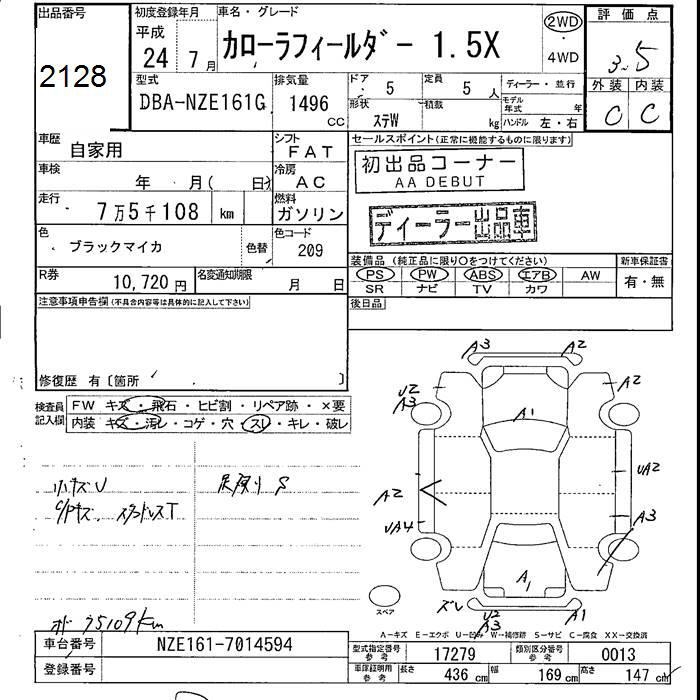 出品番号 初度登録年月 車名・グレード 評価点
2128
平成 24 7月 カローラフィールダー 1.5X 2WD ・ 4WD 3.5
型式 排気量 ドア 5 定員 5人 ディーラー・並行 外装 内装
DBA-NZE161G 1496 cc 形状 ステW 積載 kg モデル年式 年 ハンドル 左・右 C C
車歴 自家用 シフト FAT セールスポイント(正常に機能するものに限ります)
車検 年 月( 日) 冷房 AC 初出品コーナー
AA DEBUT
走行 7万5千108 km 燃料 ガソリン ディーラー出品車
色 ブラックマイカ 色替 色コード 209
装備品 (純正品に限り○をつけてください) 新車保証書
R券 10,720円 名変通知期限 月 日 PS PW ABS エアB AW 有・無
SR ナビ TV カワ
注意事項申告欄(不具合内容等は具体的に記入して下さい) 後日品
修復歴 有〔箇所 〕
検査員記入欄 FW キズ・飛石・ヒビ割・リペア跡・×要
内装 キズ・汚レ・コゲ・穴・スレ・キレ・破レ
小キズU
スタッドレスT
A3 A2
U2 A3 A2
A1
A2 UA2
UA4 A3
A1
ズレ U2 A3 A1
スペア
75109km
A-キズ E-エクボ U-凹み W-補修跡 S-サビ C-腐食 XX-交換済
車台番号 NZE161-7014594 型式指定番号 参考 17279 類別区分番号 参考 0013
登録番号 車庫証明用 参考 長さ 436cm 幅 169cm 高さ 147cm